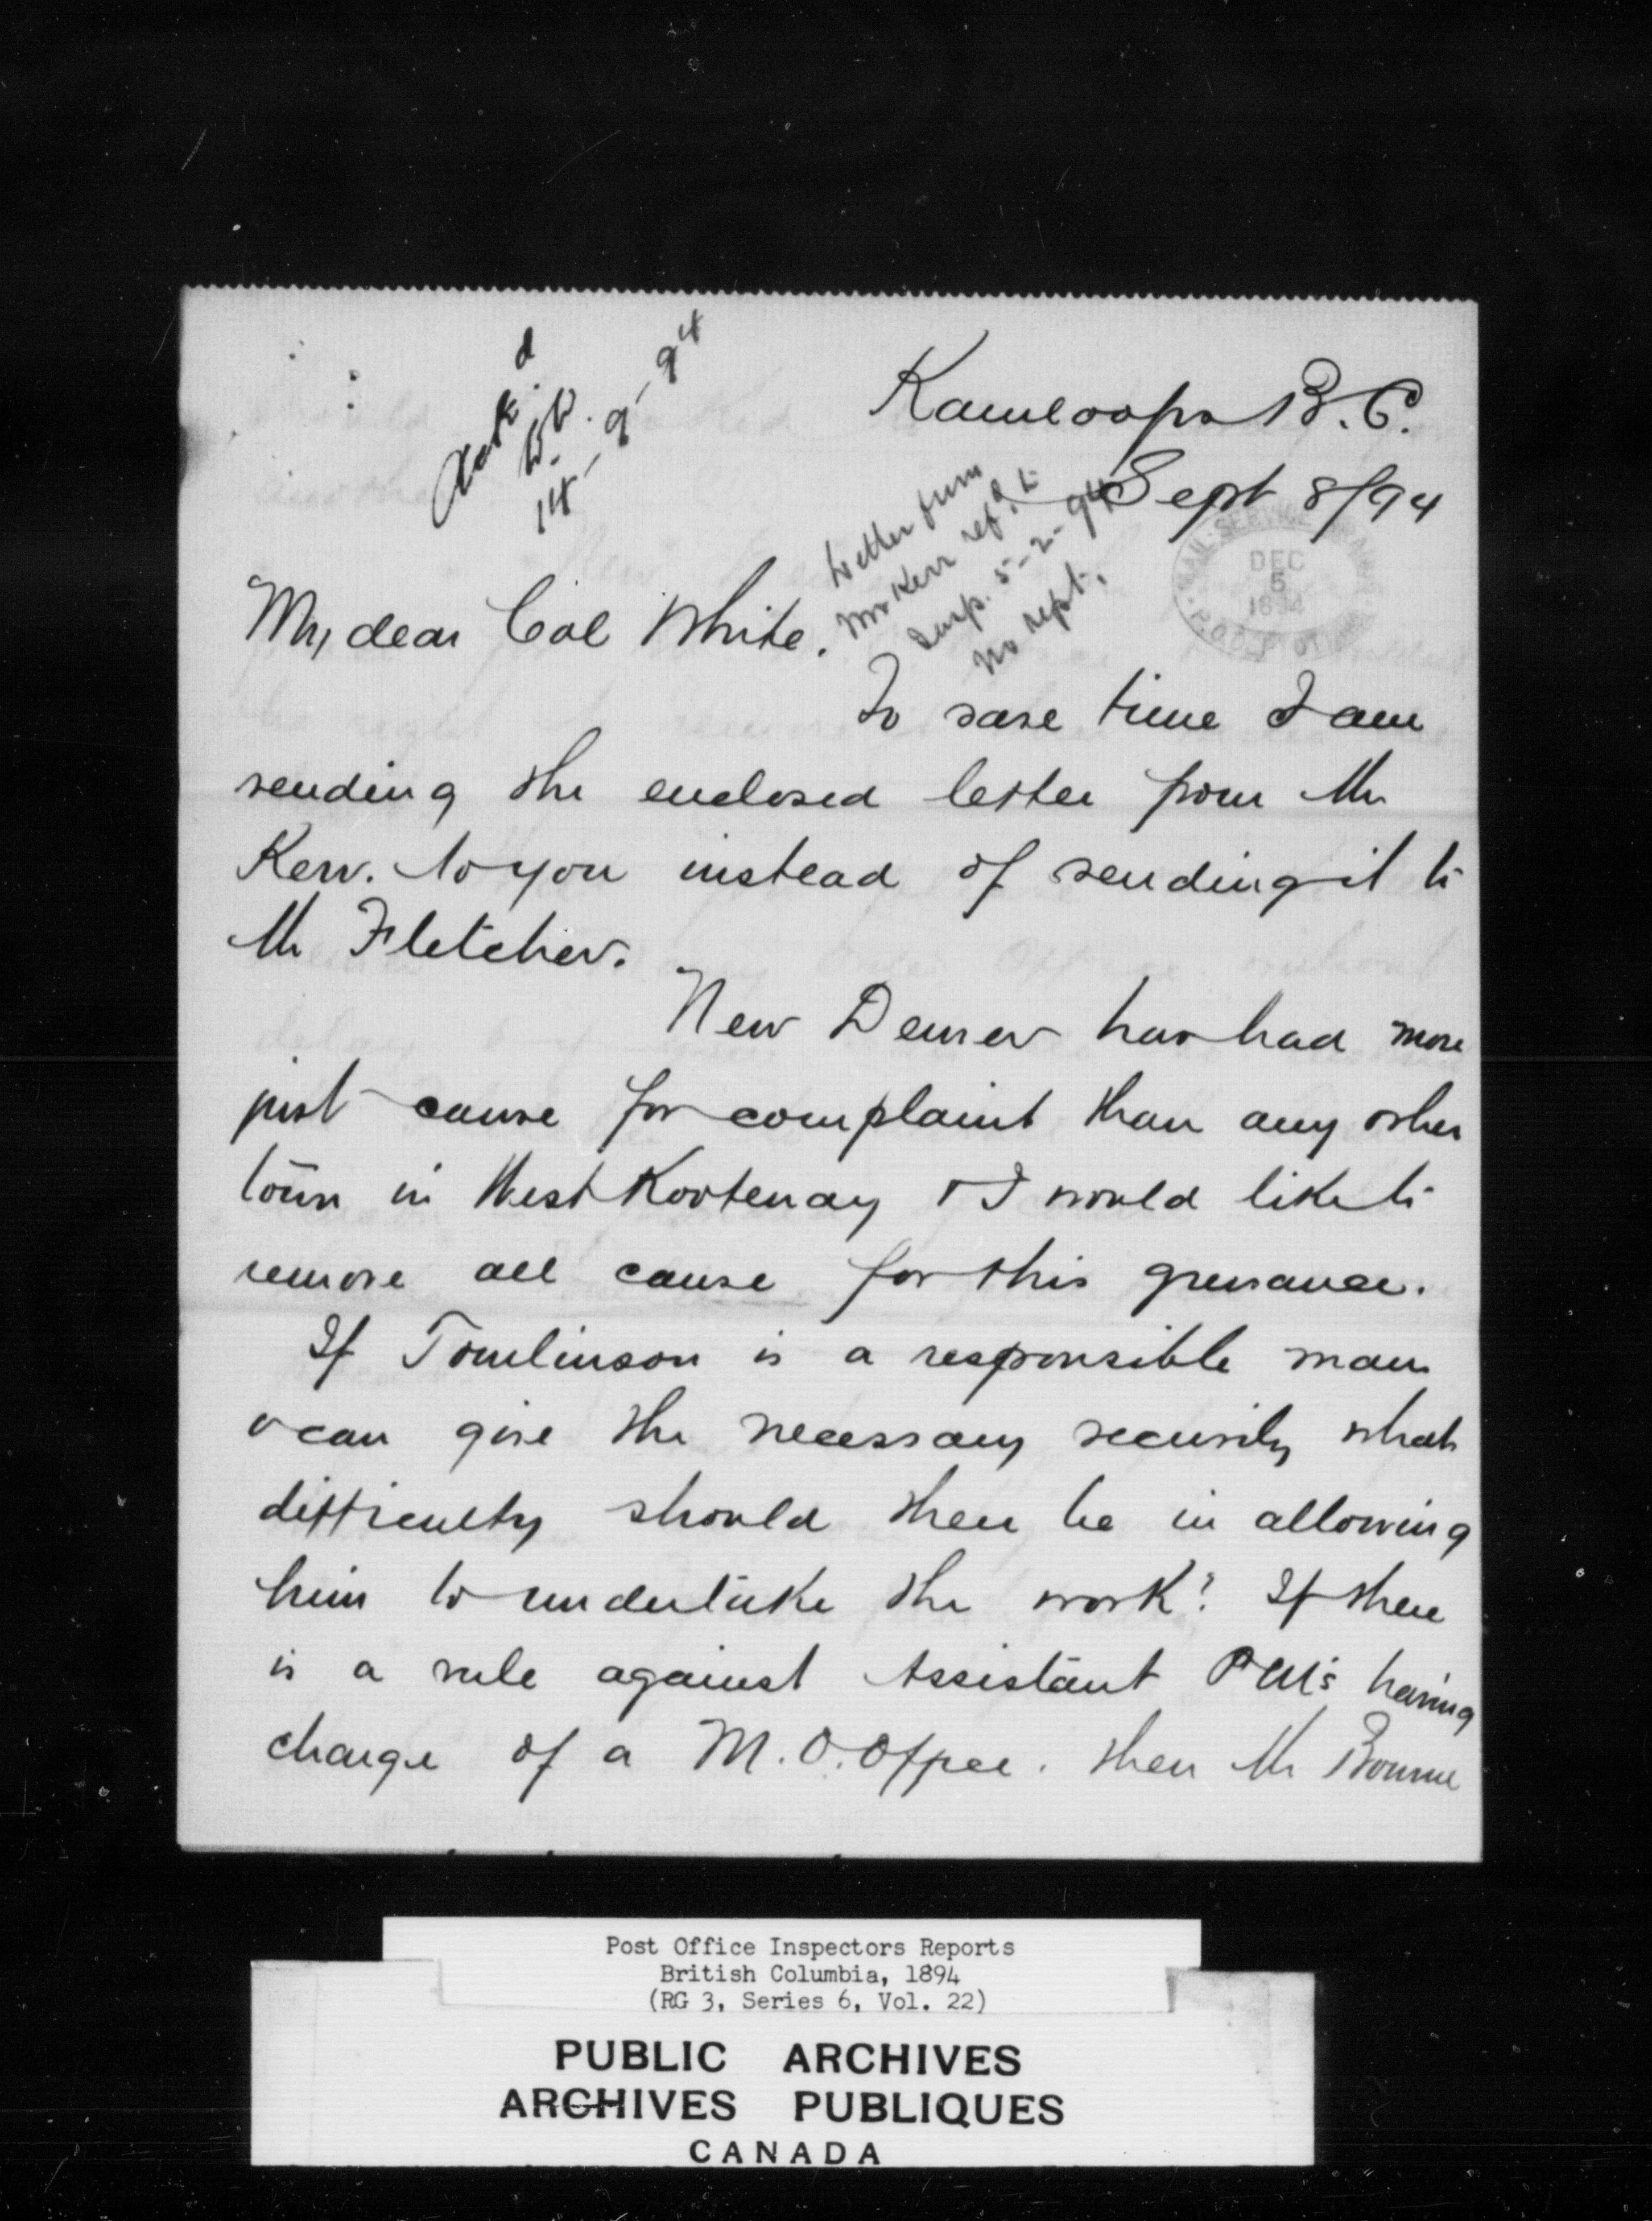 Ack'd
W.W.
14-9-94
Kamloops B.C.
Sept 8/94
Letter from
Mr Kerr ref'd to
Insp. 5-2-94
No rept.
DEC
5
1894
My dear Col White.
To save time I am
sending the enclosed letter from Mr
Kerr. to you instead of sending it to
Mr Fletcher.
New Denver has had more
just cause for complaint than any other
town in West Kootenay & I would like to
remove all cause for this grievance.
If Tomlinson is a responsible man
& can give the necessary security what
difficulty should there be in allowing
him to undertake the work? If there
is a rule against Assistant PM's having
charge of a M.O. Office. then Mr Bourne
Post Office Inspectors Reports
British Columbia, 1894
(RG 3, Series 6, Vol. 22)
PUBLIC ARCHIVES
ARCHIVES PUBLIQUES
CANADA